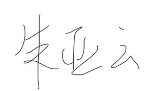 朱亚云